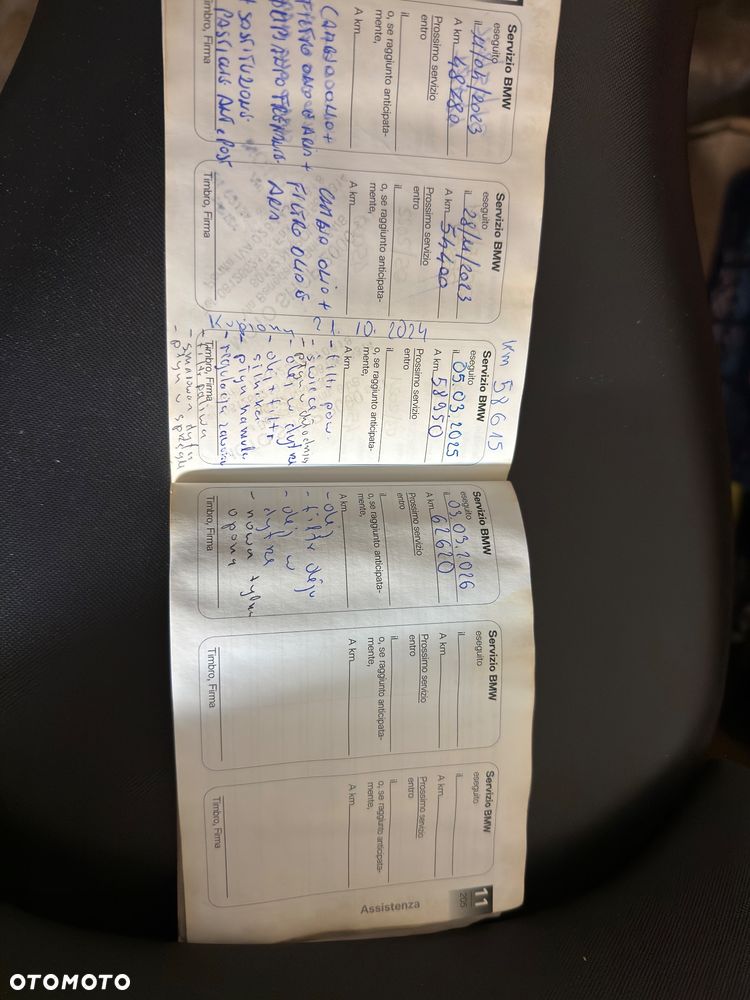 Servizio BMW
eseguito
il 31/05/2023
A km 48780
Prossimo servizio
entro
il
o, se raggiunto anticipata-
mente,
A km
CAMBIO OLIO+
FILTRO OLIO E ARIA +
+ SOSTITUZIONE
PASTIGLIE ANT. POST
Timbro, Firma
Servizio BMW
eseguito
il 28/11/2023
A km 54400
Prossimo servizio
entro
il
o, se raggiunto anticipata-
mente,
A km
CAMBIO OLIO +
FILTRO OLIO E
ARIA
Timbro, Firma
Kupiony 21.10.2024
Km 58615
Servizio BMW
eseguito
il 05.03.2025
A km 58950
Prossimo servizio
entro
il
o, se raggiunto anticipata-
mente,
A km
- filtr pow.
- świece
- płyn w chłodnicy
- olej w dyfrze
- olej + filtr
silnika
- płyn hamulc
- regulacja zaworów
Timbro, Firma
- filtr paliwa
- płyn w sprzęgle
Servizio BMW
eseguito
il 03.03.2026
A km 62620
Prossimo servizio
entro
il
o, se raggiunto anticipata-
mente,
A km
- olej
- filtr oleju
- olej w
dyfrze
- nowa tylna
opona
Timbro, Firma
Servizio BMW
eseguito
il
A km
Prossimo servizio
entro
il
o, se raggiunto anticipata-
mente,
A km
Timbro, Firma
Servizio BMW
eseguito
il
A km
Prossimo servizio
entro
il
o, se raggiunto anticipata-
mente,
A km
Timbro, Firma
11
205
Assistenza
OTOMOTO